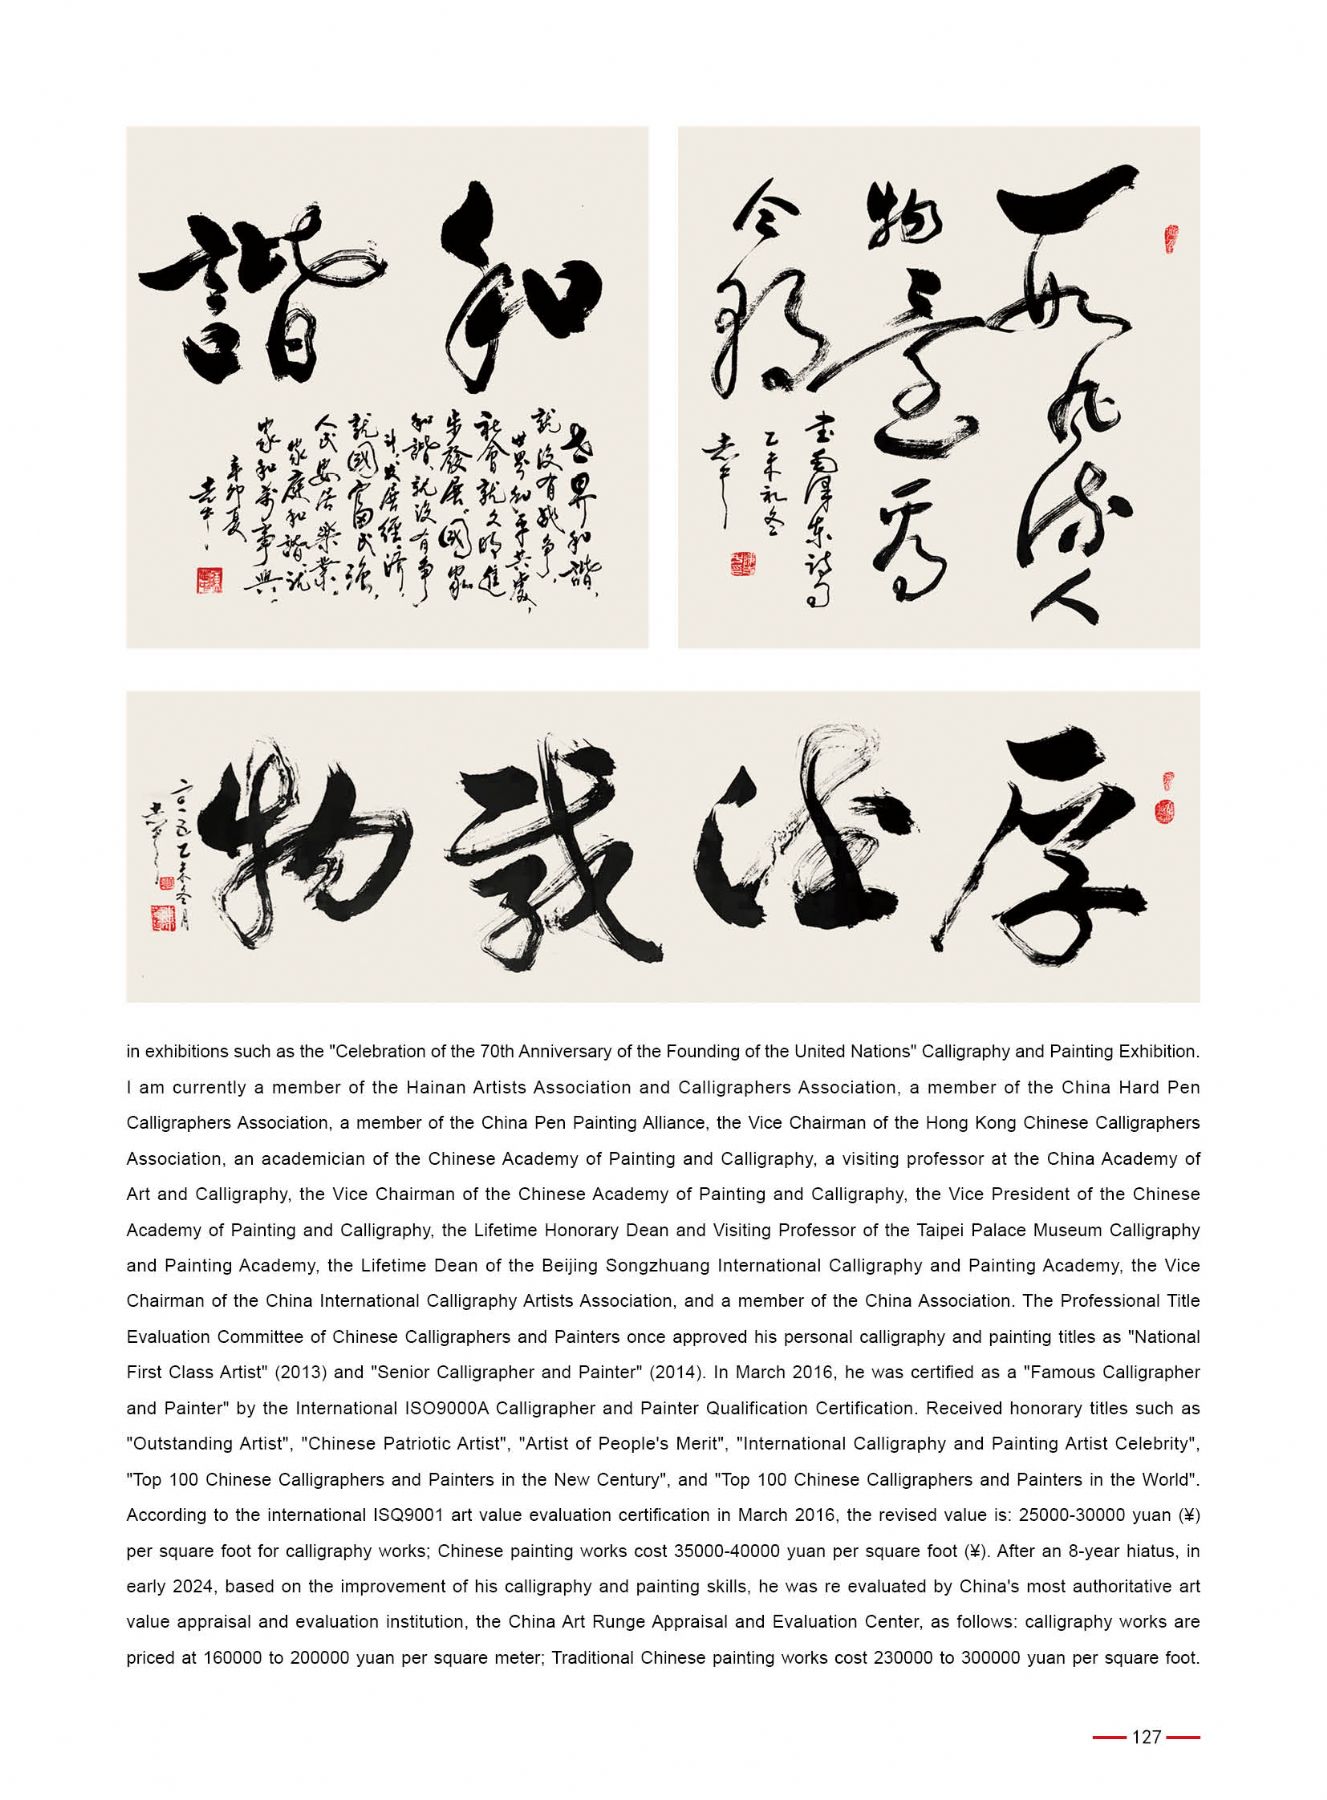 和諧
世界和諧，
就沒有戰爭，
世界和平共處，
社會就文明進
步發展，國家
和諧，就沒有爭
斗，发展經濟，
就國富民強，
人民安居樂業。
家庭和諧就
家和萬事興。
辛卯夏
數风流人
物還看
今朝
書毛澤東詩句
乙未初冬
厚德載物
二〇一五乙未冬月
in exhibitions such as the "Celebration of the 70th Anniversary of the Founding of the United Nations" Calligraphy and Painting Exhibition.
I am currently a member of the Hainan Artists Association and Calligraphers Association, a member of the China Hard Pen
Calligraphers Association, a member of the China Pen Painting Alliance, the Vice Chairman of the Hong Kong Chinese Calligraphers
Association, an academician of the Chinese Academy of Painting and Calligraphy, a visiting professor at the China Academy of
Art and Calligraphy, the Vice Chairman of the Chinese Academy of Painting and Calligraphy, the Vice President of the Chinese
Academy of Painting and Calligraphy, the Lifetime Honorary Dean and Visiting Professor of the Taipei Palace Museum Calligraphy
and Painting Academy, the Lifetime Dean of the Beijing Songzhuang International Calligraphy and Painting Academy, the Vice
Chairman of the China International Calligraphy Artists Association, and a member of the China Association. The Professional Title
Evaluation Committee of Chinese Calligraphers and Painters once approved his personal calligraphy and painting titles as "National
First Class Artist" (2013) and "Senior Calligrapher and Painter" (2014). In March 2016, he was certified as a "Famous Calligrapher
and Painter" by the International ISO9000A Calligrapher and Painter Qualification Certification. Received honorary titles such as
"Outstanding Artist", "Chinese Patriotic Artist", "Artist of People's Merit", "International Calligraphy and Painting Artist Celebrity",
"Top 100 Chinese Calligraphers and Painters in the New Century", and "Top 100 Chinese Calligraphers and Painters in the World".
According to the international ISQ9001 art value evaluation certification in March 2016, the revised value is: 25000-30000 yuan (¥)
per square foot for calligraphy works; Chinese painting works cost 35000-40000 yuan per square foot (¥). After an 8-year hiatus, in
early 2024, based on the improvement of his calligraphy and painting skills, he was re evaluated by China's most authoritative art
value appraisal and evaluation institution, the China Art Runge Appraisal and Evaluation Center, as follows: calligraphy works are
priced at 160000 to 200000 yuan per square meter; Traditional Chinese painting works cost 230000 to 300000 yuan per square foot.
127